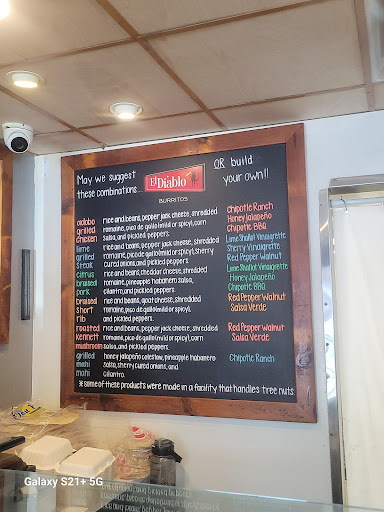 May we suggest
these combinations...
El Diablo
BURRITOS
OR build
your own!!
adobo grilled chicken
rice and beans, pepper jack cheese, shredded
romaine, pico de gallo (mild or spicy), corn
salsa, and pickled peppers
Chipotle Ranch
Honey Jalapeño
Chipotle BBQ
lime grilled steak
rice and beans, pepper jack cheese, shredded
romaine, pico de gallo (mild or spicy), sherry
cured onions, and pickled peppers
Lime Shallot Vinaigrette
Sherry Vinaigrette
Red Pepper Walnut
citrus braised pork
rice and beans, cheddar cheese, shredded
romaine, pineapple habanero salsa,
cilantro, and pickled peppers
Lime Shallot Vinaigrette
Honey Jalapeño
Chipotle BBQ
braised short rib
rice and beans, goat cheese, shredded
romaine, pico de gallo (mild or spicy),
and pickled peppers
Red Pepper Walnut
Salsa Verde
roasted kennett mushroom
rice and beans, pepper jack cheese, shredded
romaine, pico de gallo (mild or spicy), corn
salsa, and pickled peppers
Red Pepper Walnut
Salsa Verde
grilled mahi mahi
honey jalapeño coleslaw, pineapple habanero
salsa, sherry cured onions, and
cilantro
Chipotle Ranch
* some of these products were made in a facility that handles tree nuts
Galaxy S21+ 5G